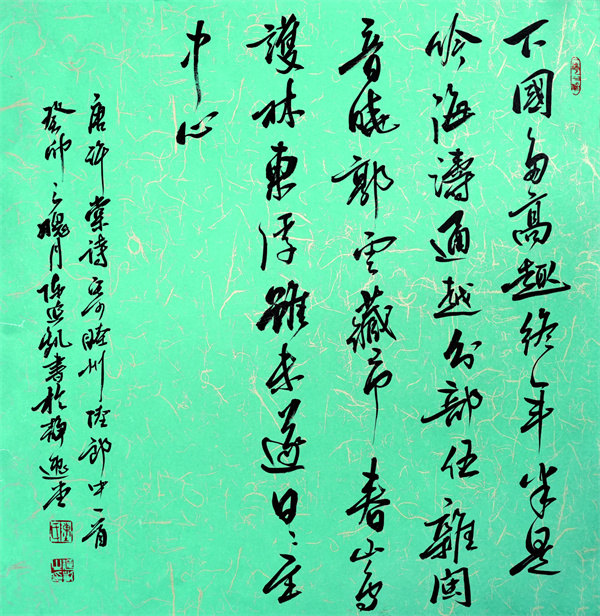 下國多高趣終年半是
吟海濤通越分部伍雜閩
音曉郭雲藏市春山鳥
護林東浮雖未遂日日至
中心
唐許棠詩寄睦州陸郎中一首
癸卯之槐月書於靜逸堂